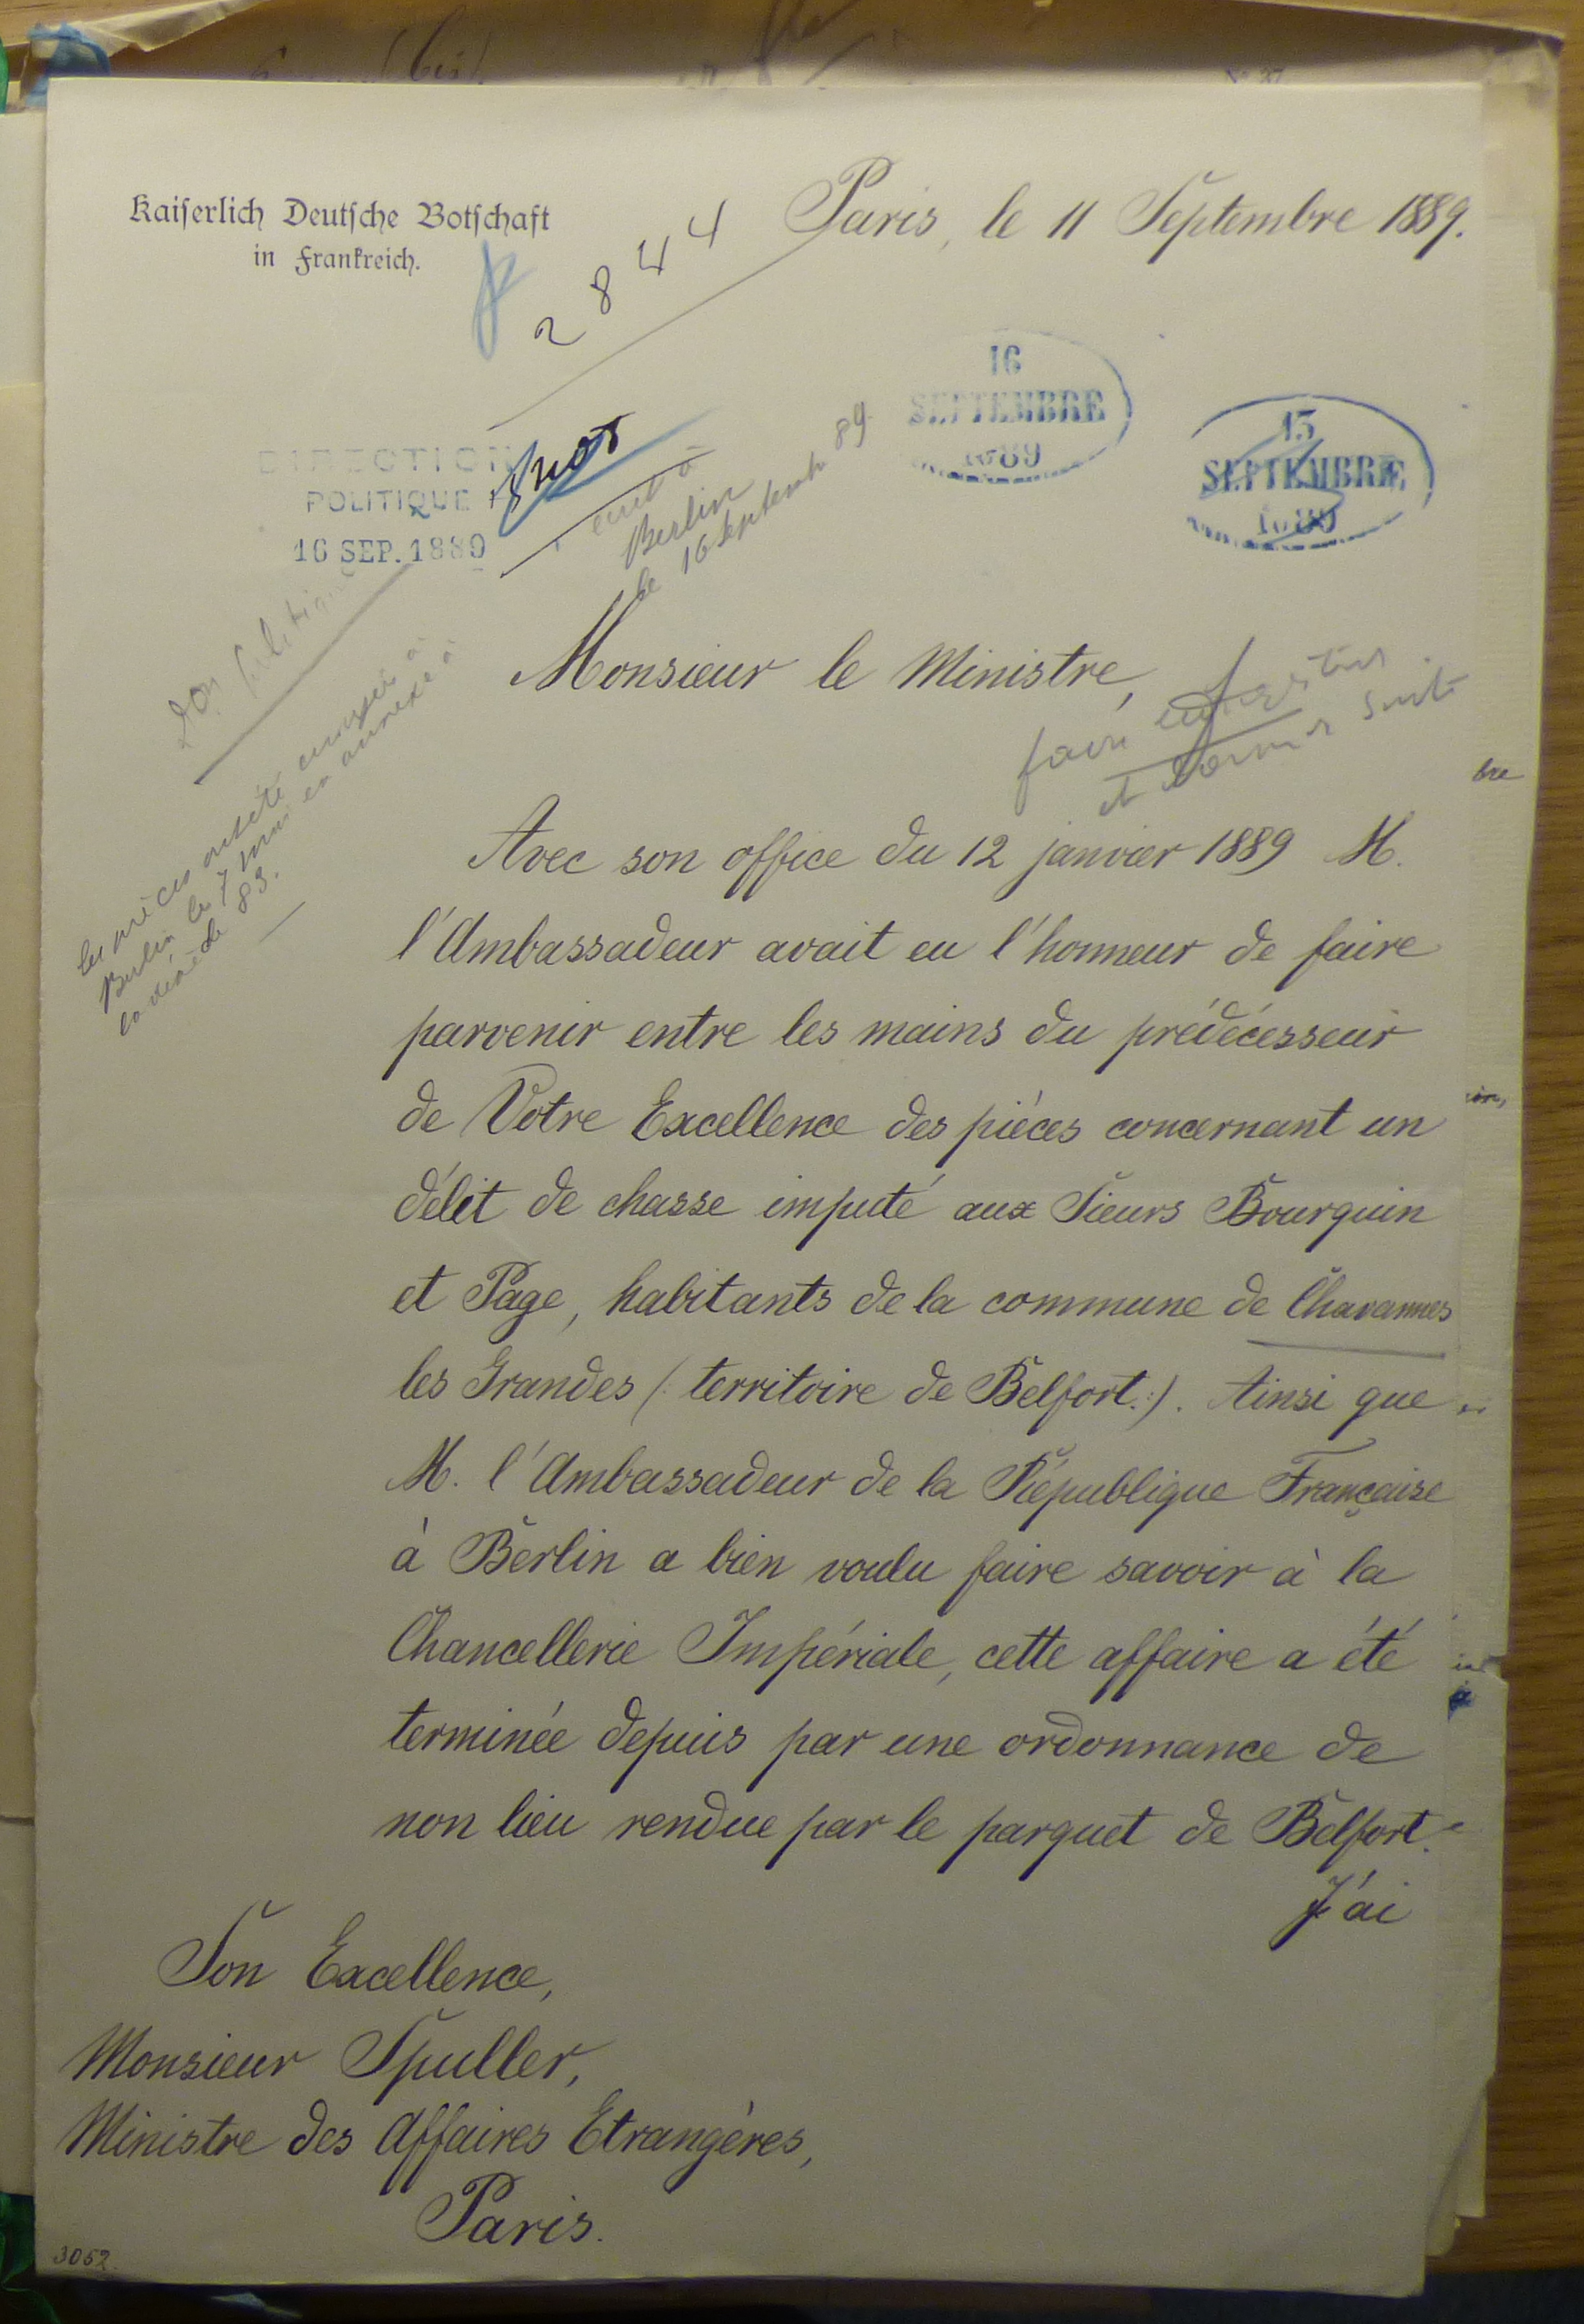 Kaiserlich Deutsche Botschaft
in Frankreich.
Paris, le 11 Septembre 1889.
2844
16
SEPTEMBRE
1889
13
SEPTEMBRE
1889
DIRECTION
POLITIQUE
16 SEP. 1889
écrit à
Berlin
le 16 Septembre 89.
Monsieur le Ministre,
faire
et donner suite
les pièces ont été envoyées à
Berlin le 7 mai en annexe à
la dép. de 89.
Avec son office du 12 janvier 1889 M.
l'Ambassadeur avait eu l'honneur de faire
parvenir entre les mains du prédécesseur
de Votre Excellence des pièces concernant un
délit de chasse imputé aux Sieurs Bourquin
et Page, habitants de la commune de Chavannes
les Grandes (: territoire de Belfort.:). Ainsi que
M. l'Ambassadeur de la République Française
à Berlin a bien voulu faire savoir à la
Chancellerie Impériale, cette affaire a été
terminée depuis par une ordonnance de
non lieu rendue par le parquet de Belfort.
J'ai
Son Excellence,
Monsieur Spuller,
Ministre des Affaires Etrangères,
Paris.
3052.